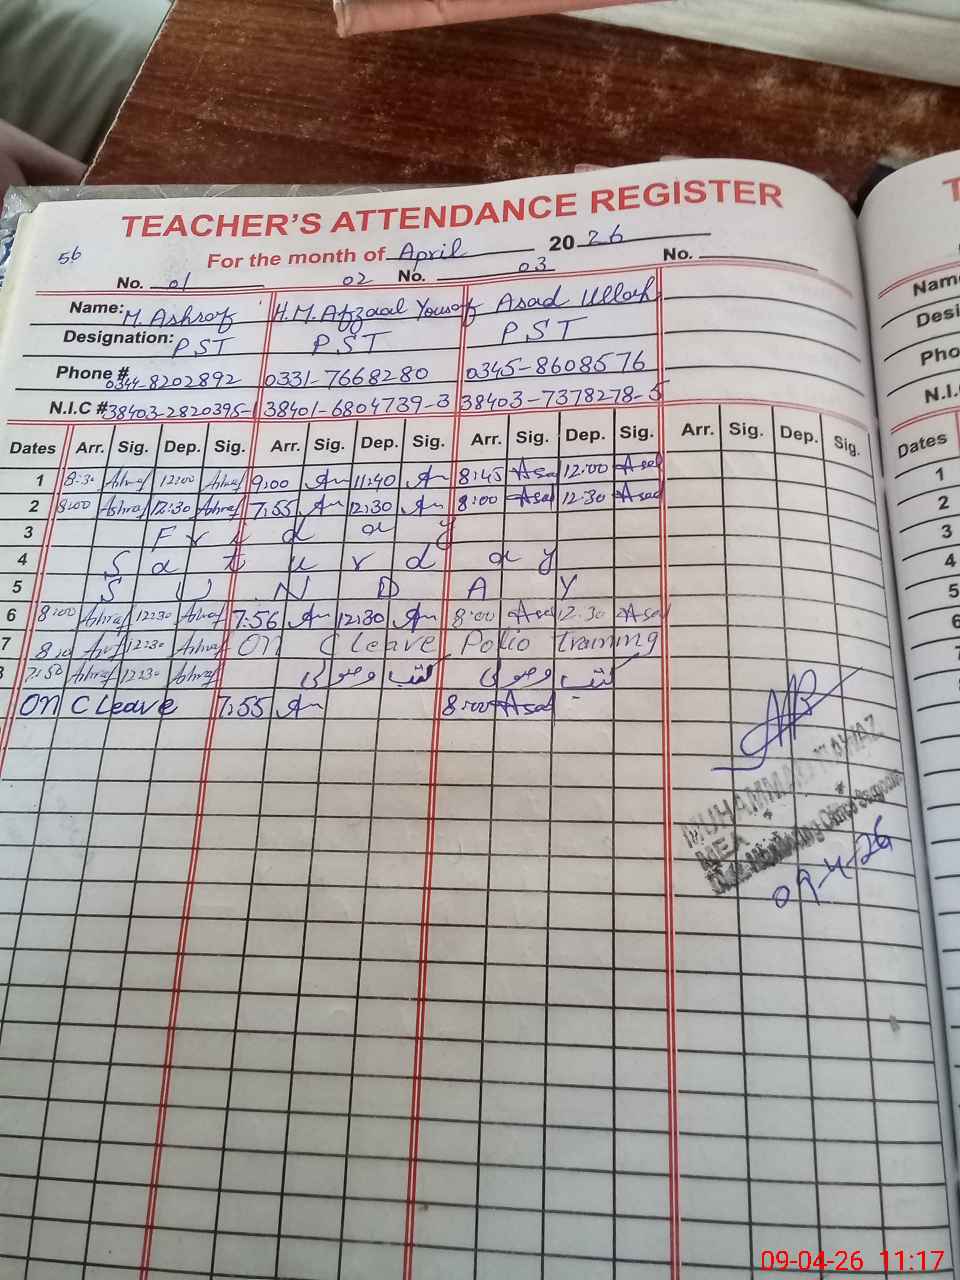 TEACHER'S ATTENDANCE REGISTER
56 For the month of April 2026
No. 01 02 No. 03 No.
Name: M. Ashraf H.M. Afzaal Yousaf Asad Ullah
Designation: PST PST PST
Phone # 0344-8202892 0331-7668280 0345-8608576
N.I.C # 38403-2820395-1 38401-6804739-3 38403-7378278-5
Dates Arr. Sig. Dep. Sig. Arr. Sig. Dep. Sig. Arr. Sig. Dep. Sig. Arr. Sig. Dep. Sig.
1 8:30 Ashraf 12:00 Ashraf 9:00 11:40 8:45 Asad 12:00 Asad
2 8:00 Ashraf 12:30 Ashraf 7:55 12:30 8:00 Asad 12:30 Asad
3 Friday
4 Saturday
5 SUNDAY
6 8:00 Ashraf 12:30 Ashraf 7:56 12:30 8:00 Asad 12:30 Asad
7 Ashraf 12:30 Ashraf On C leave Polio training
7:50 Ashraf 12:30 Ashraf
On C Leave 7:55 8:00 Asad
MUHAMMAD
MEA
Monitoring Officer
09-4-26
Dates
1
2
3
4
5
6
09-04-26 11:17